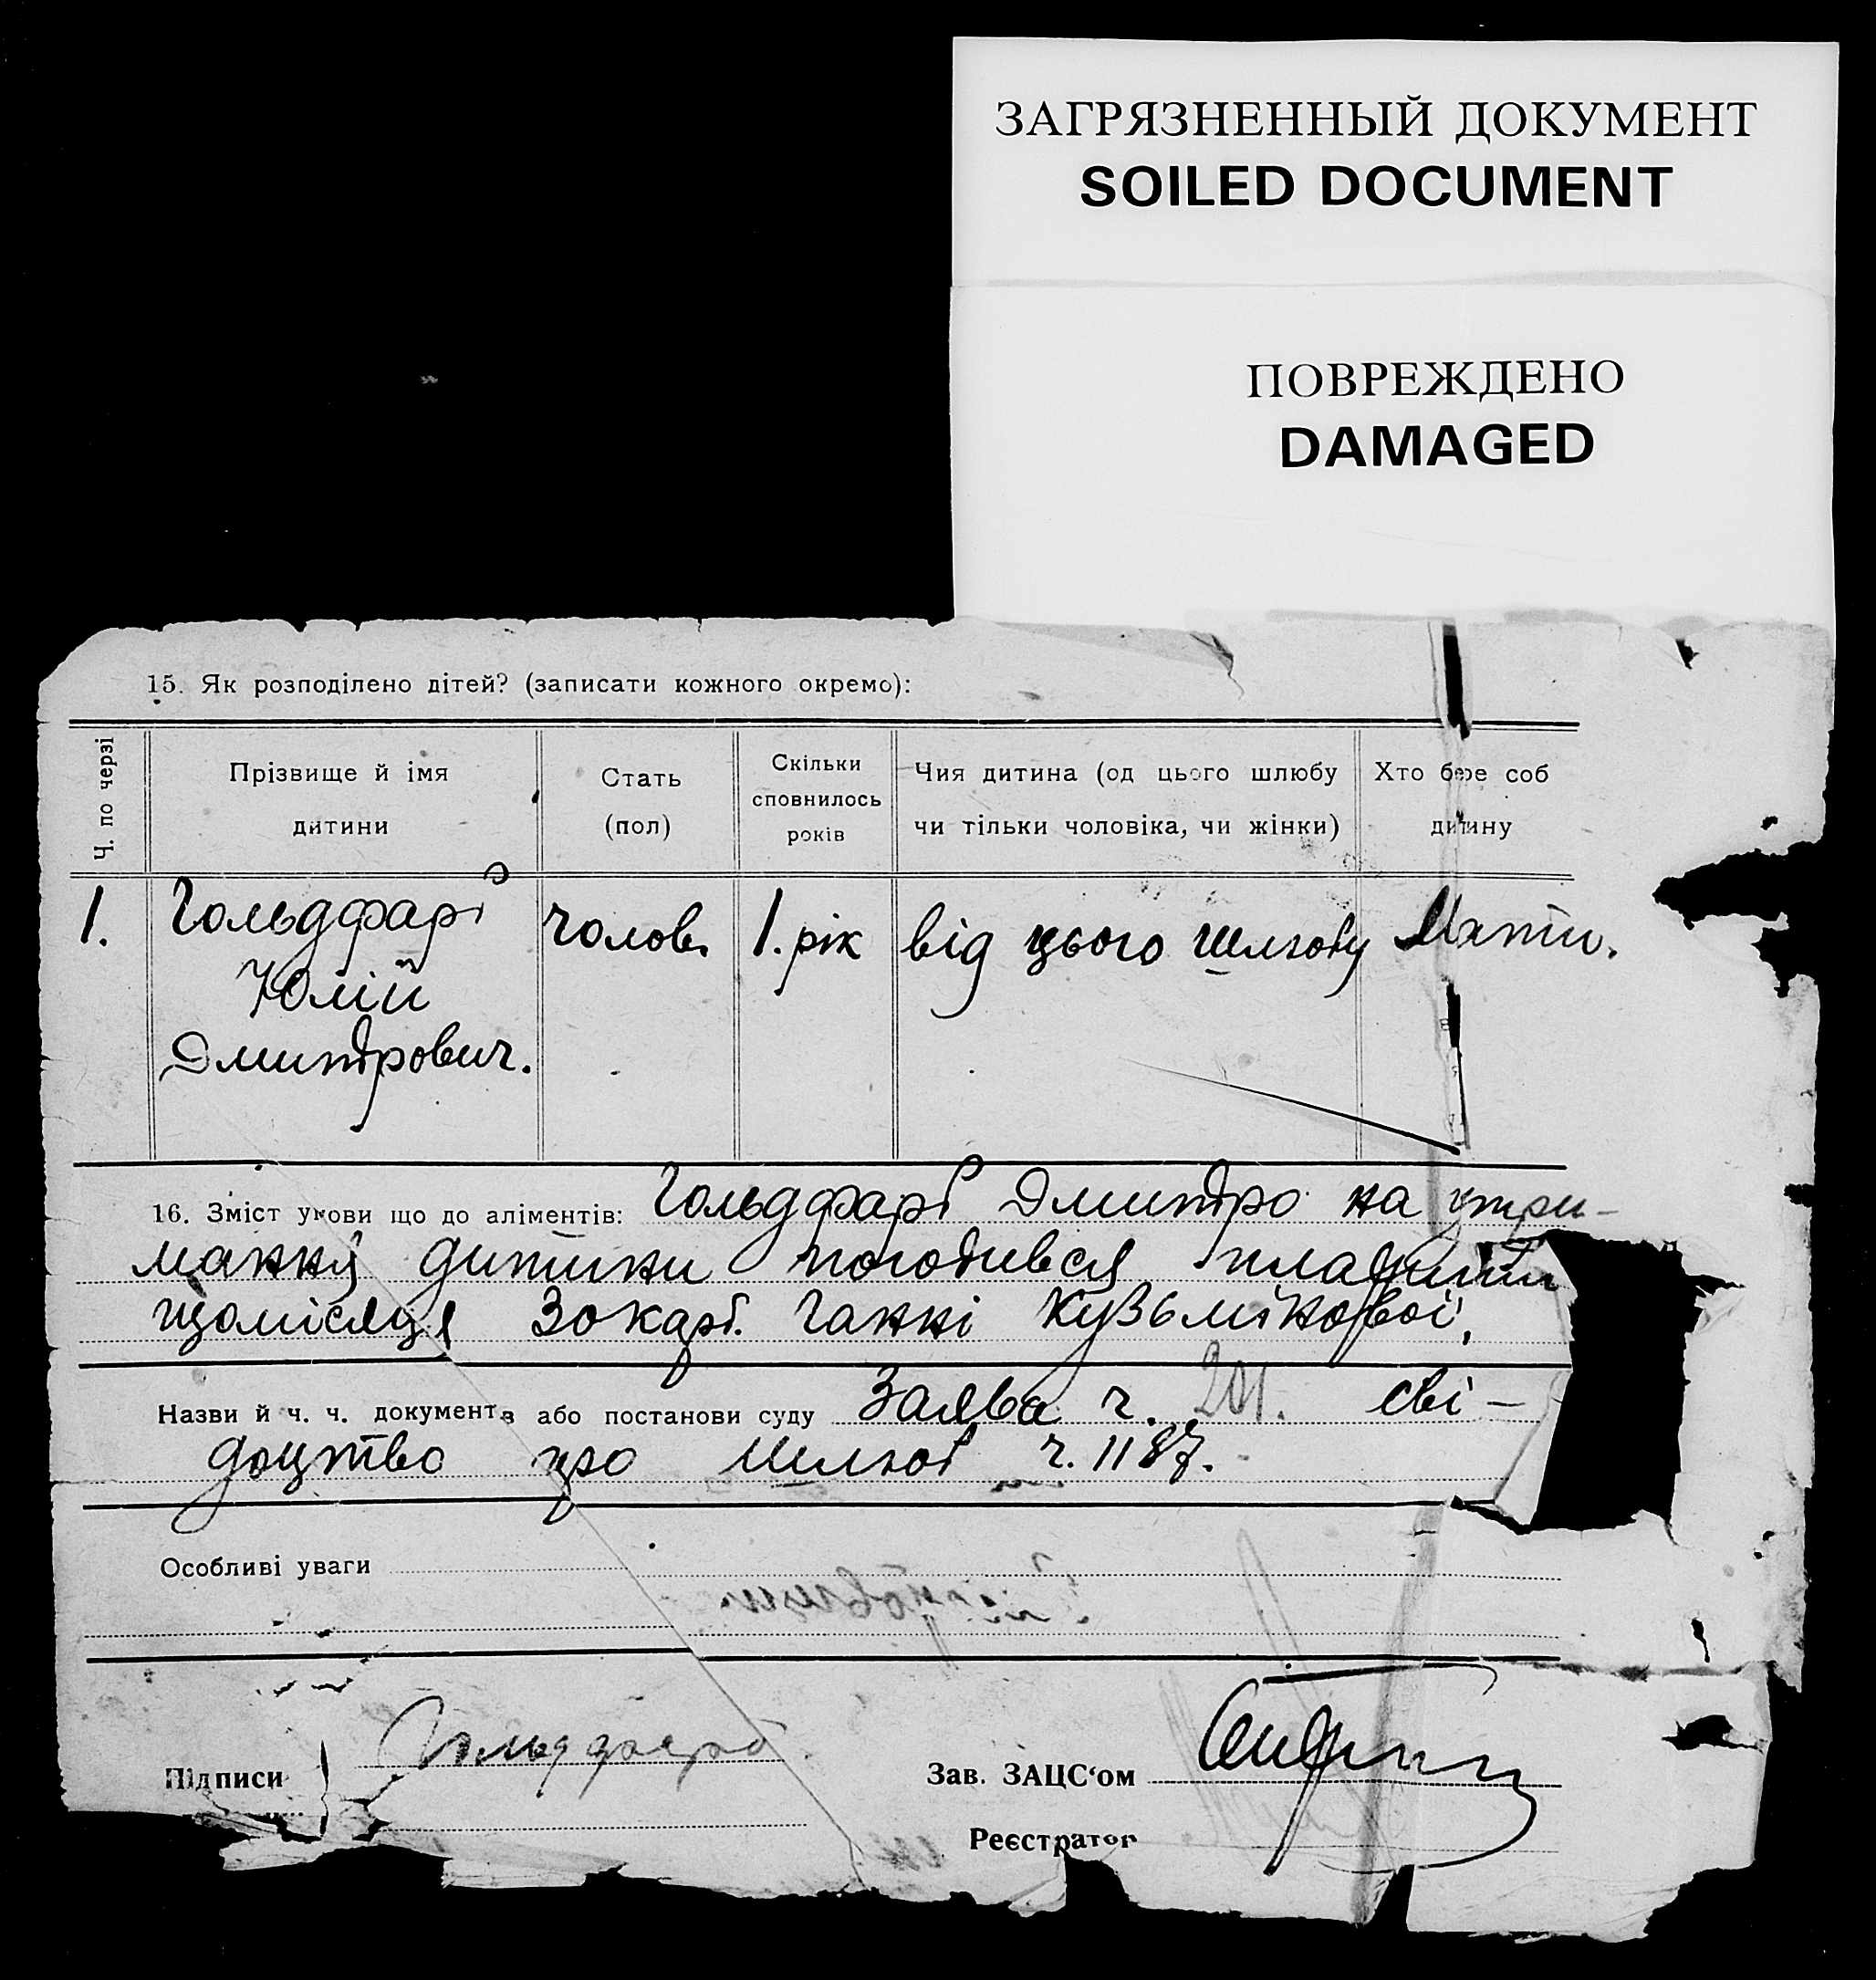 ЗАГРЯЗНЕННЫЙ ДОКУМЕНТ
SOILED DOCUMENT
ПОВРЕЖДЕНО
DAMAGED
15. Як розподілено дітей? (записати кожного окремо):
Ч. по черзі
Прізвище й імя
дитини
Стать
(пол)
Скільки
сповнилось
років
Чия дитина (од цього шлюбу
чи тільки чоловіка, чи жінки)
Хто бере соб
дитину
1.
Гольдфарб
Юлій
Дмитрович.
чолов.
1. рік
від цього шлюбу
Мати.
16. Зміст умови що до аліментів: Гольдфарб Дмитро на утри-
мання дитини погодився платити
щомісяця 30 карб. Ганні Кузьміновой,
Назви й ч. ч. документів або постанови суду Заява ч. 201. сві-
доцтво про шлюб ч. 1187.
Особливі уваги
Підписи Гольдфарб
Зав. ЗАЦС‘ом
Реєстратор